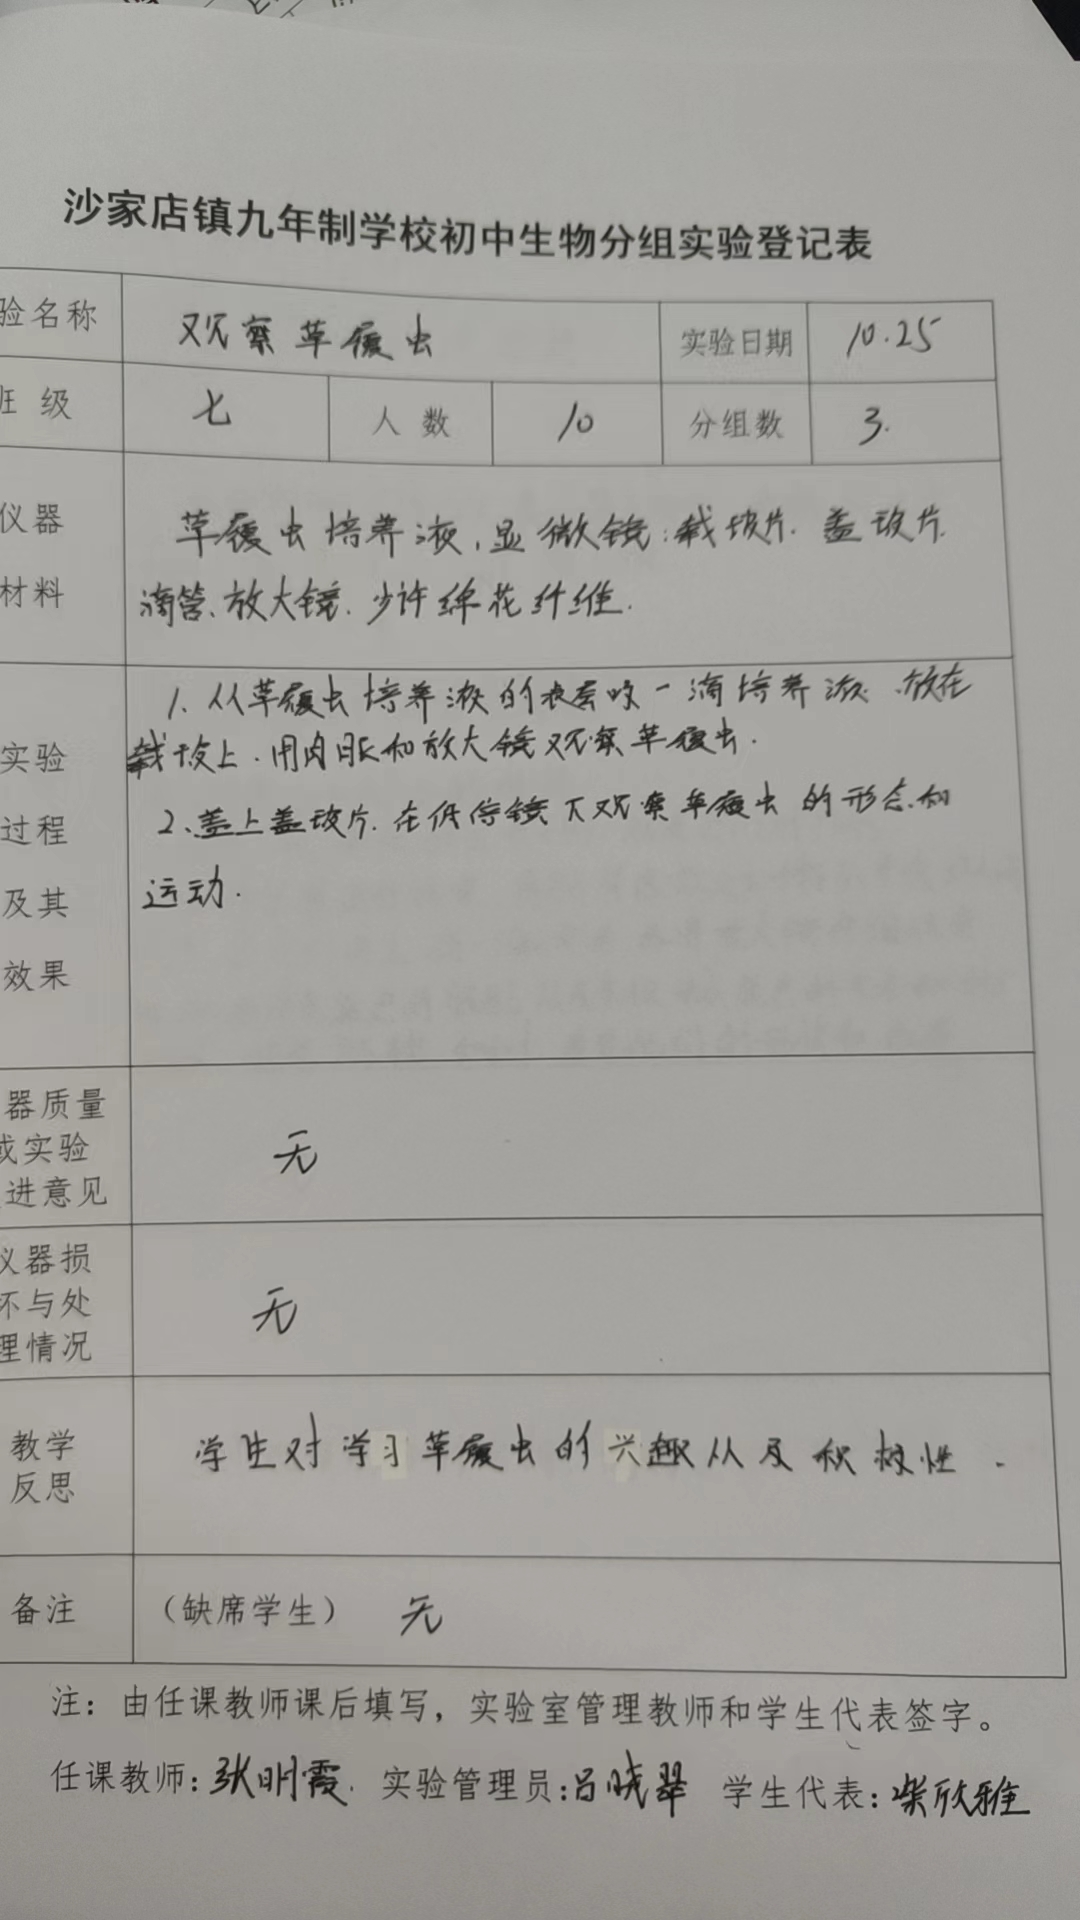 沙家店镇九年制学校初中生物分组实验登记表
验名称 观察草履虫 实验日期 10.25
班 级 七 人 数 10 分组数 3.
仪器
材料
草履虫培养液,显微镜.载玻片.盖玻片.
滴管、放大镜.少许绵花纤维.
实验
过程
及其
效果
1、从草履虫培养液的表层吸一滴培养液.放在
载玻上.用肉眼和放大镜观察草履虫.
2、盖上盖玻片.在低倍镜下观察草履虫的形态和
运动.
器质量
或实验
进意见
无
仪器损
坏与处
理情况
无
教学
反思
学生对学习草履虫的兴趣从及积极性.
备注 (缺席学生) 无
注:由任课教师课后填写,实验室管理教师和学生代表签字。
任课教师:张明霞. 实验管理员:吕晓翠 学生代表:柴欣雅